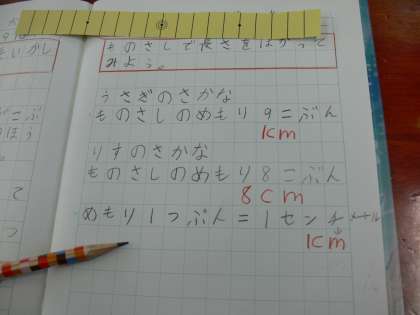 ものさしで長さをはかって
みよう。
うさぎのさかな
ものさしのめもり9こぶん
1cm
りすのさかな
ものさしのめもり8こぶん
8cm
めもり1つぶん=1センチメートル
1cm